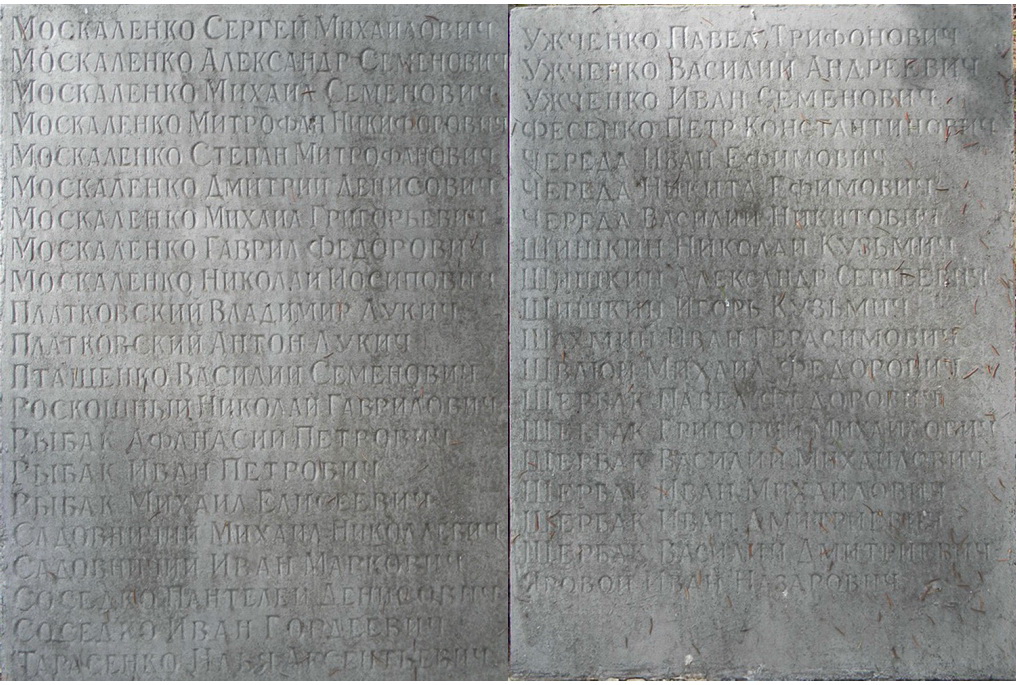 Москаленко Сергей Михайлович
Москаленко Александр Семенович
Москаленко Михаил Семенович
Москаленко Митрофан Никифорович
Москаленко Степан Митрофанович
Москаленко Дмитрий Денисович
Москаленко Михаил Григорьевич
Москаленко Гаврил Федорович
Москаленко Николай Иосипович
Платковский Владимир Лукич
Платковский Антон Лукич
Пташенко Василий Семенович
Роскошный Николай Гаврилович
Рыбак Афанасий Петрович
Рыбак Иван Петрович
Рыбак Михаил Елисеевич
Садовничий Михаил Николаевич
Садовничий Иван Маркович
Соседко Пантелей Денисович
Соседко Иван Гордеевич
Тарасенко Илья Аксентьевич
Ужченко Павел Трифонович
Ужченко Василий Андреевич
Ужченко Иван Семенович
Фесенко Петр Константинович
Череда Иван Ефимович
Череда Никита Ефимович
Череда Василий Никитович
Шишкин Николай Кузьмич
Шишкин Александр Сергеевич
Шишкин Игорь Кузьмич
Шахмин Иван Герасимович
Швлюй Михаил Федорович
Щербак Павел Федорович
Щербак Григорий Михайлович
Щербак Василий Михайлович
Щербак Иван Михайлович
Щербак Иван Дмитриевич
Щербак Василий Дмитриевич
Яровой Иван Назарович